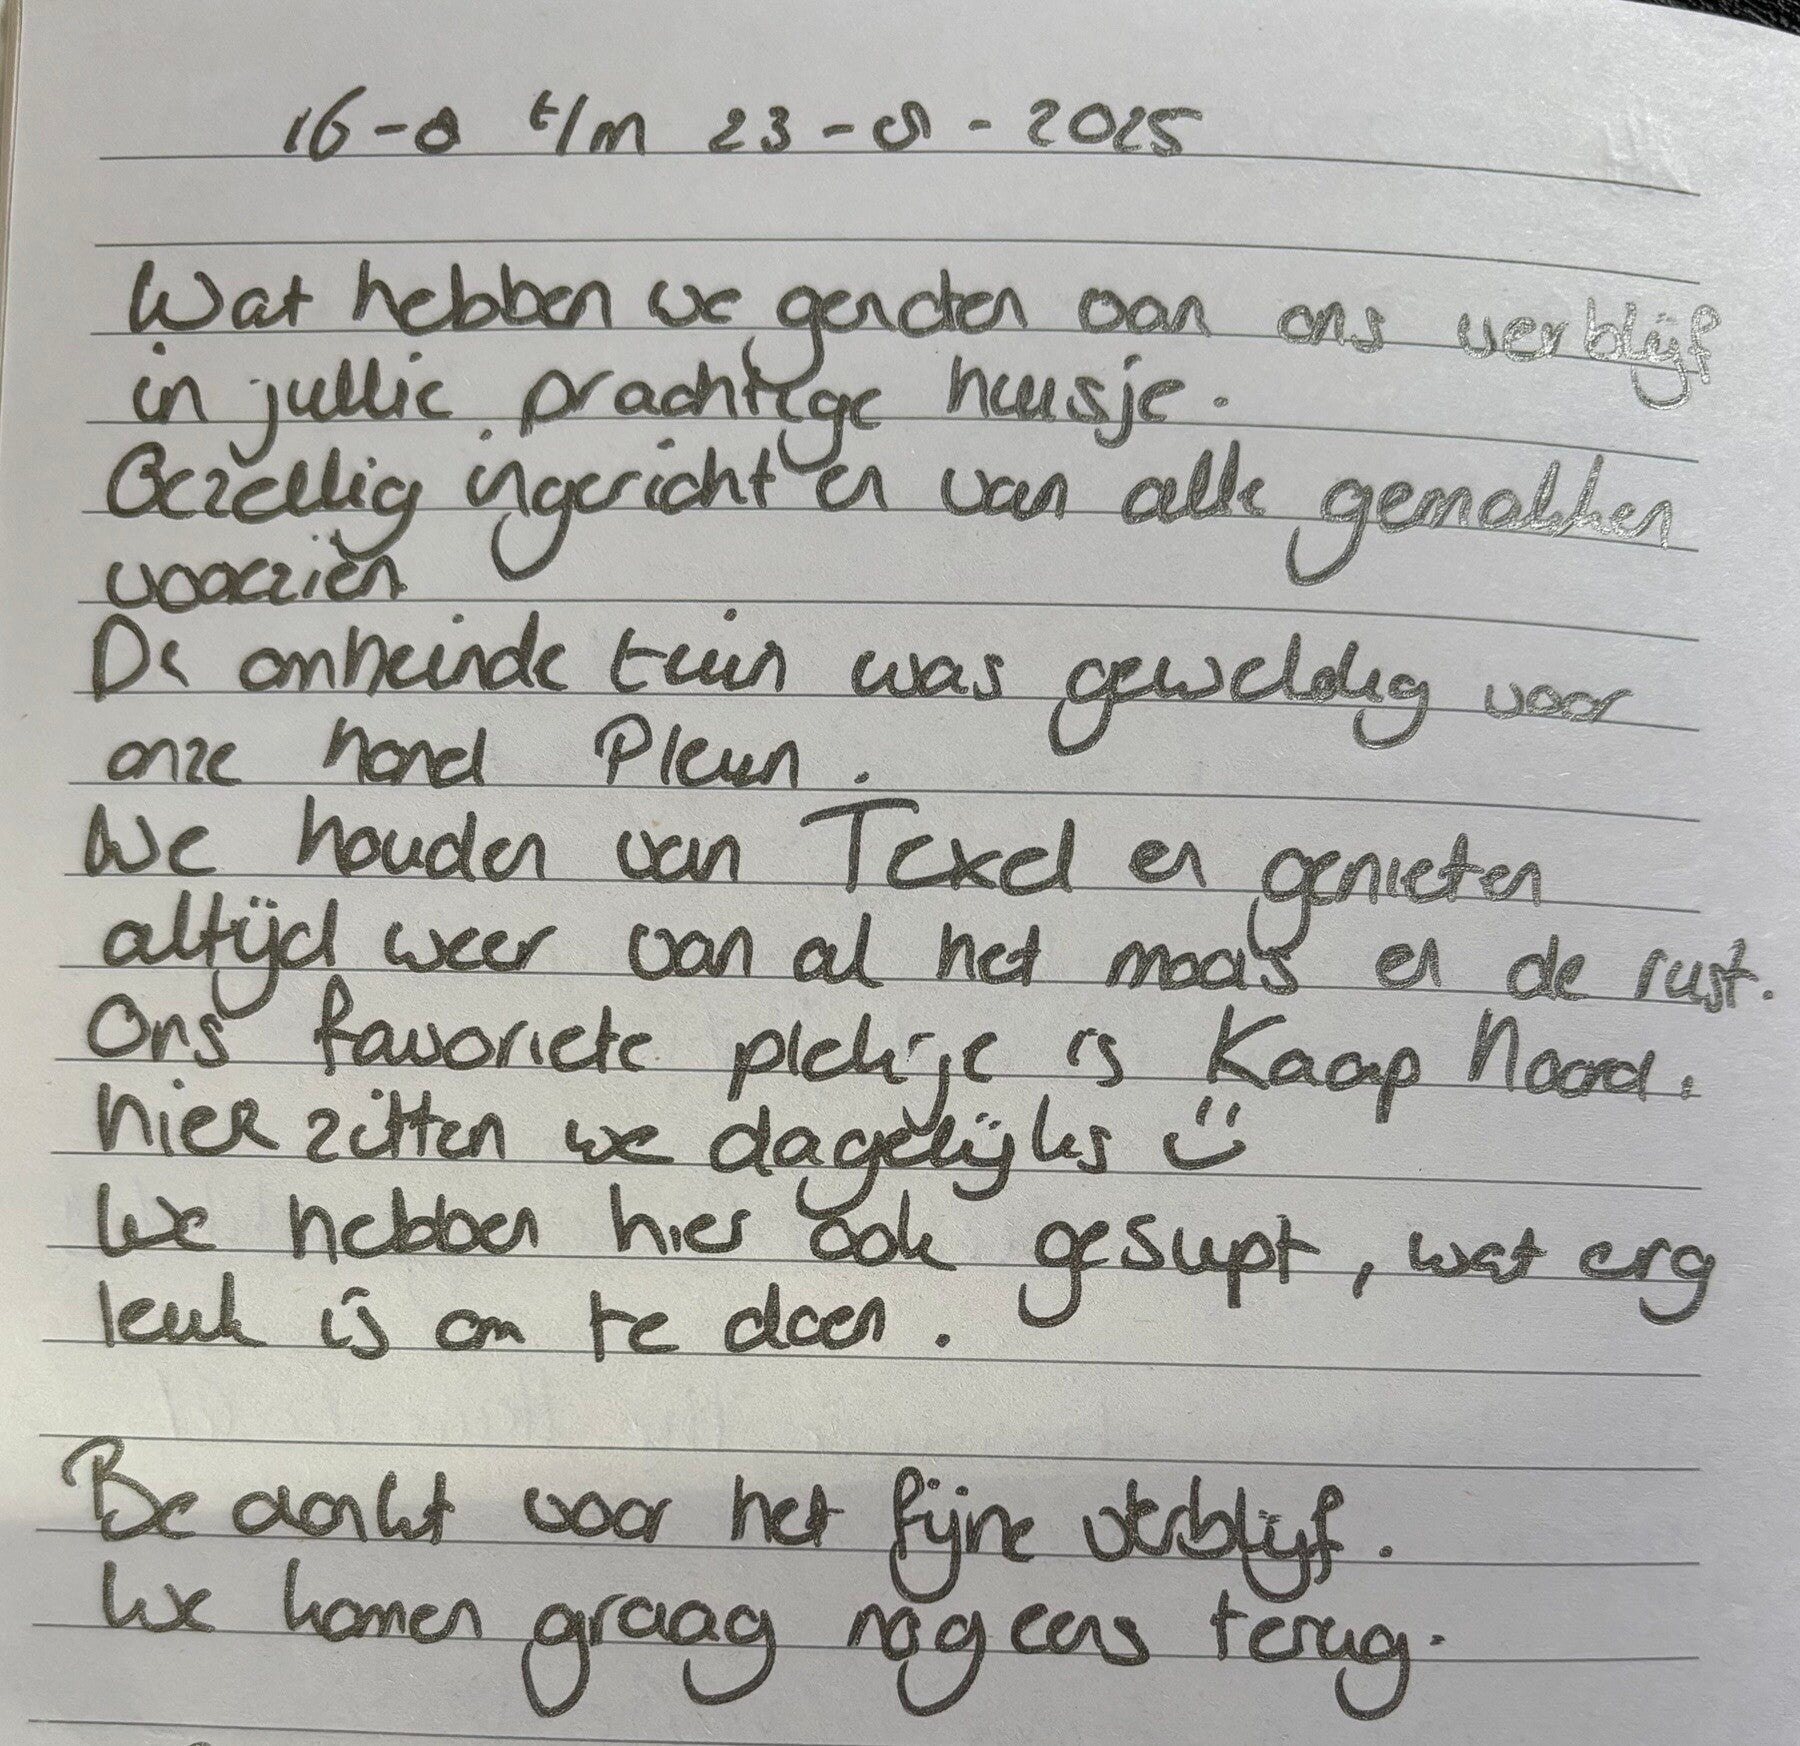 16-8 t/m 23-8-2025
Wat hebben we genoten van ons verblijf
in jullie prachtige huisje.
Gezellig ingericht en van alle gemakken
voorzien
De omheinde tuin was geweldig voor
onze hond Pleun.
We houden van Texel en genieten
altijd weer van al het moois en de rust.
Ons favoriete plekje is Kaap Noord.
hier zitten we dagelijks ☺
We hebben hier ook gesupt, wat erg
leuk is om te doen.
Bedankt voor het fijne verblijf.
We komen graag nog eens terug.